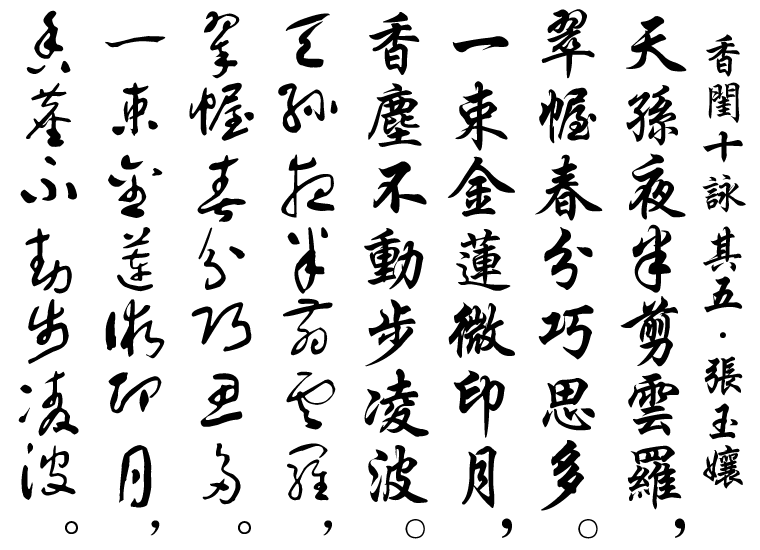 香閨十詠 其五．張玉孃
天孫夜半剪雲羅，
翠幄春分巧思多。
一束金蓮微印月，
香塵不動步凌波。
天孫夜半剪雲羅，
翠幄春分巧思多。
一束金蓮微印月，
香塵不動步凌波。